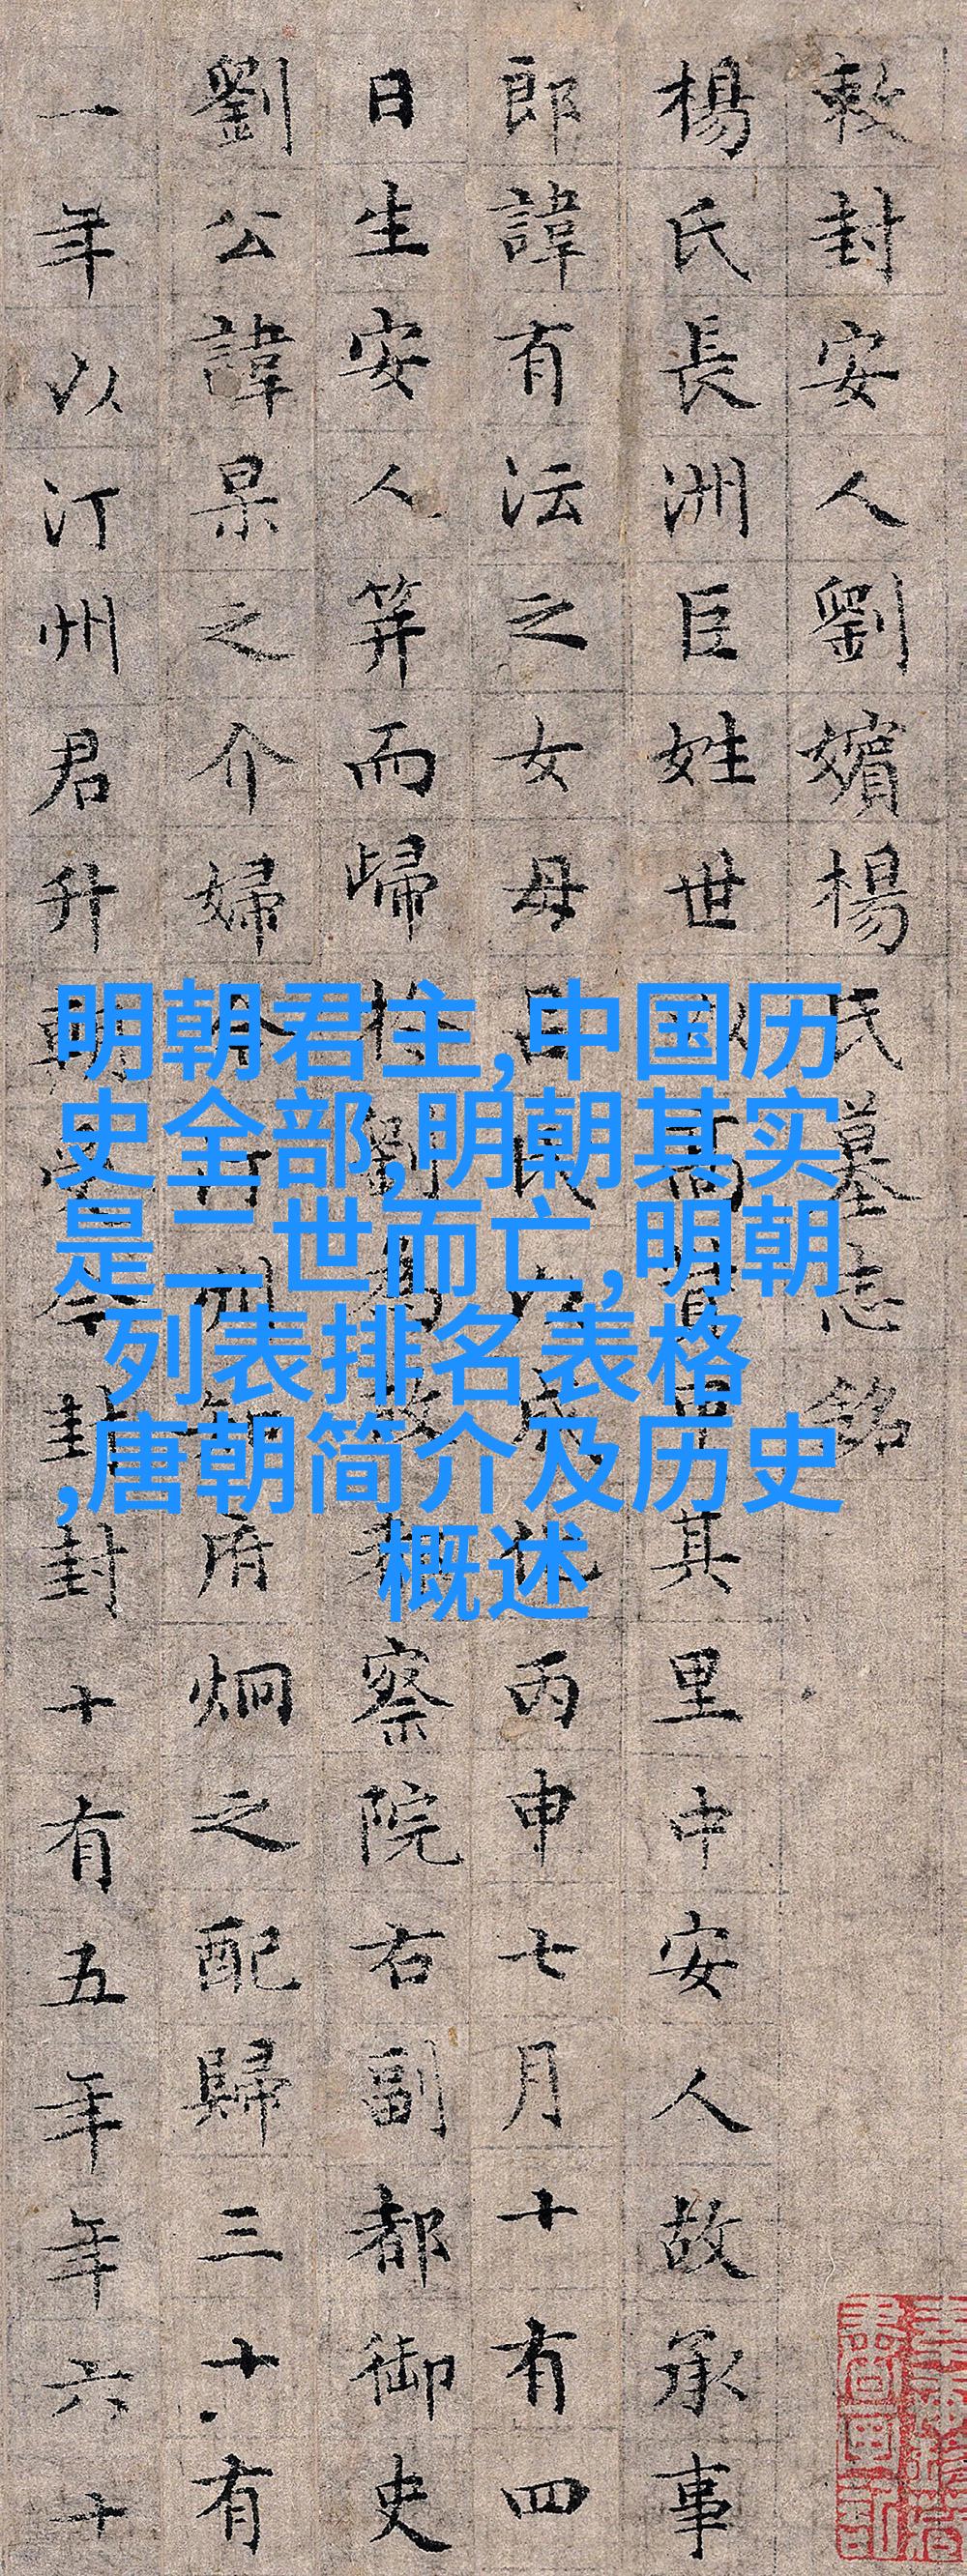 敕封安人劉嬪楊氏墓志銘
楊氏長洲巨姓世高甲其里中安人故承事
郎諱有沄之女母氏以成化丙申七月十有四
日生安人笄而歸於劉為故察院右副都御史
劉公諱杲之介婦今州府炯之配歸三十有
一年以汀州君升朝受今封封十有五年年六十
明朝君主,中国历
史全部,明朝其实
是二世而亡,明朝
列表排名表格
,唐朝简介及历史
概述